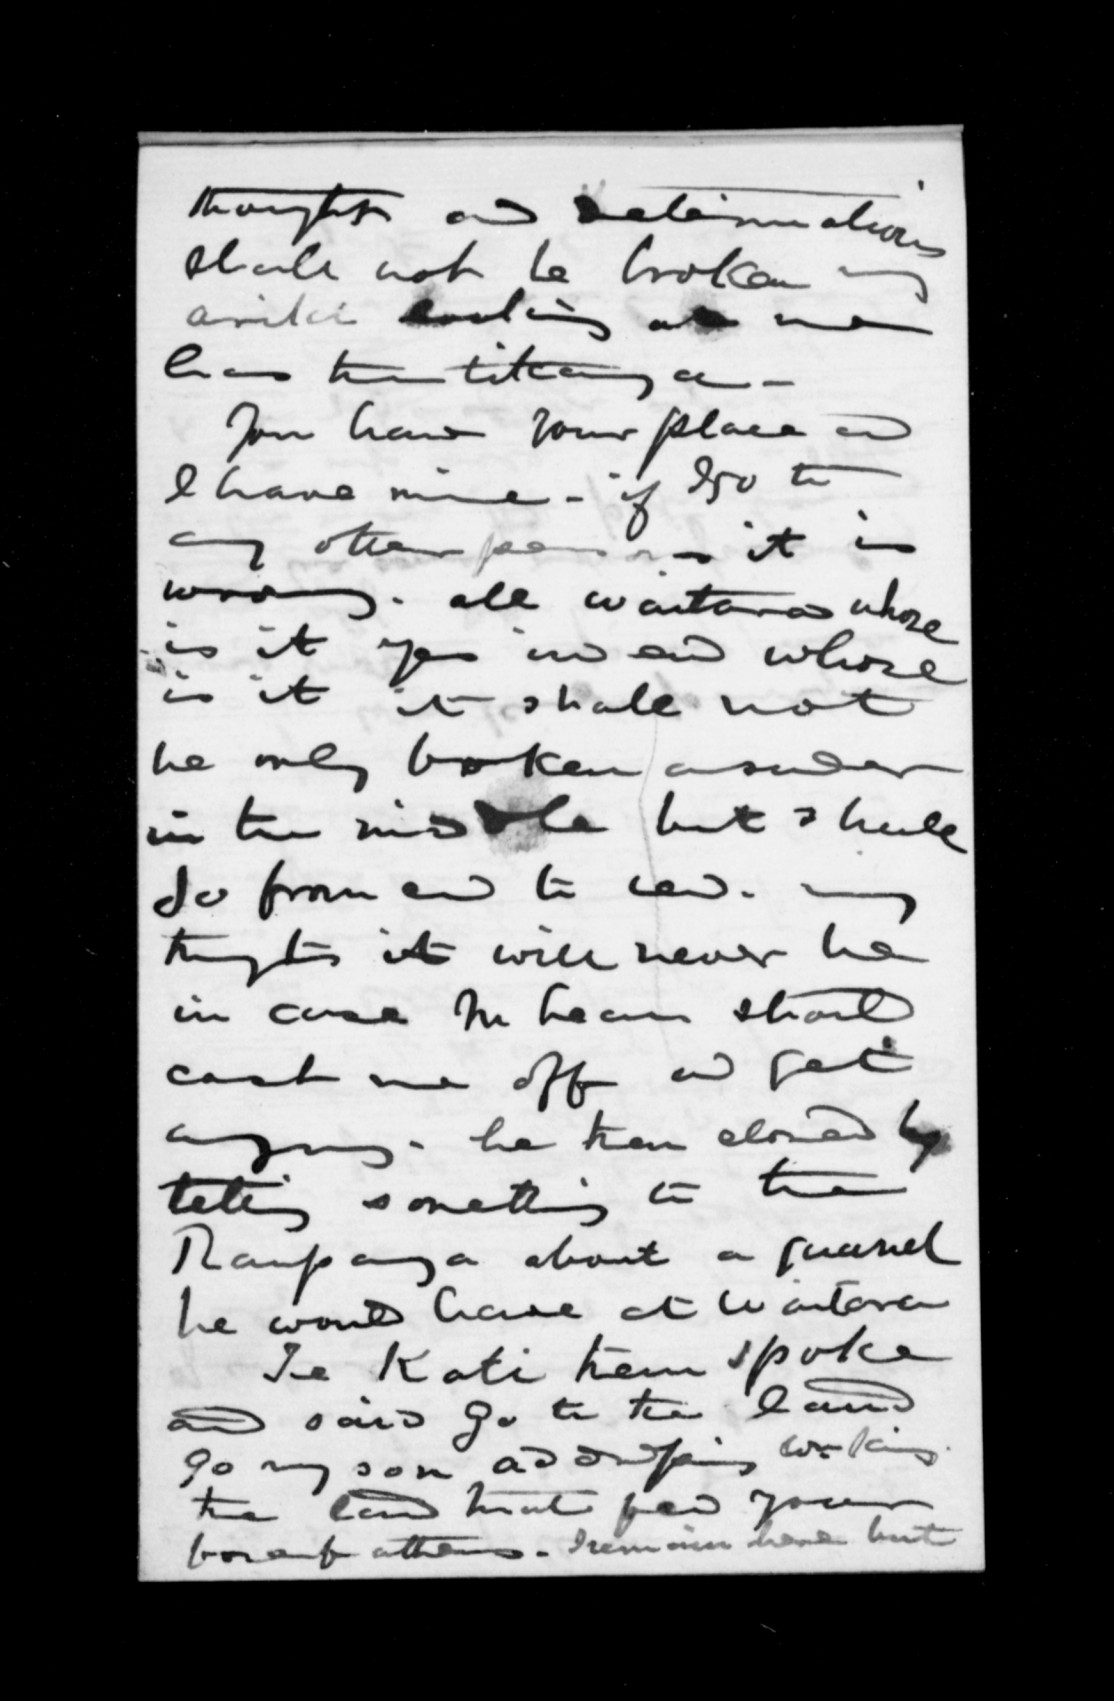 thoughts and determinations
shall not be broken my
ariki looking at me
has the tikanga -
You have your place and
I have mine - if I go to
any other person it is
wrong. all Waitara whose
is it yes indeed whose
is it it shall not
be only broken asunder
in the middle but shall
do from end to end. my
thoughts it will never be
in case McLean should
cast me off and get
angry. he then closed by
telling something to the
Raupanga about a quarrel
he would have at Waitara
Te Kati then spoke
and said go to the land
go my son
the land that fed your
forefathers. I remain here but